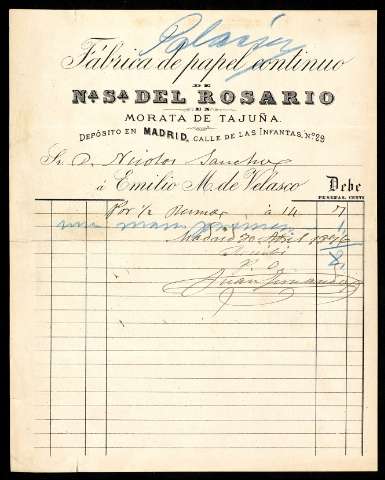 Fábrica de papel continuo
DE
Nª Sª DEL ROSARIO
EN
MORATA DE TAJUÑA.
DEPÓSITO EN MADRID, CALLE DE LAS INFANTAS, Nº 28
Sr. D. Nicolas Sanchez
á Emilio M. de Velasco Debe
PESETAS. CENTS
Por 1/2 á 14 7
Madrid 30 Abril
Recibí
P. O.
Juan Fernandez